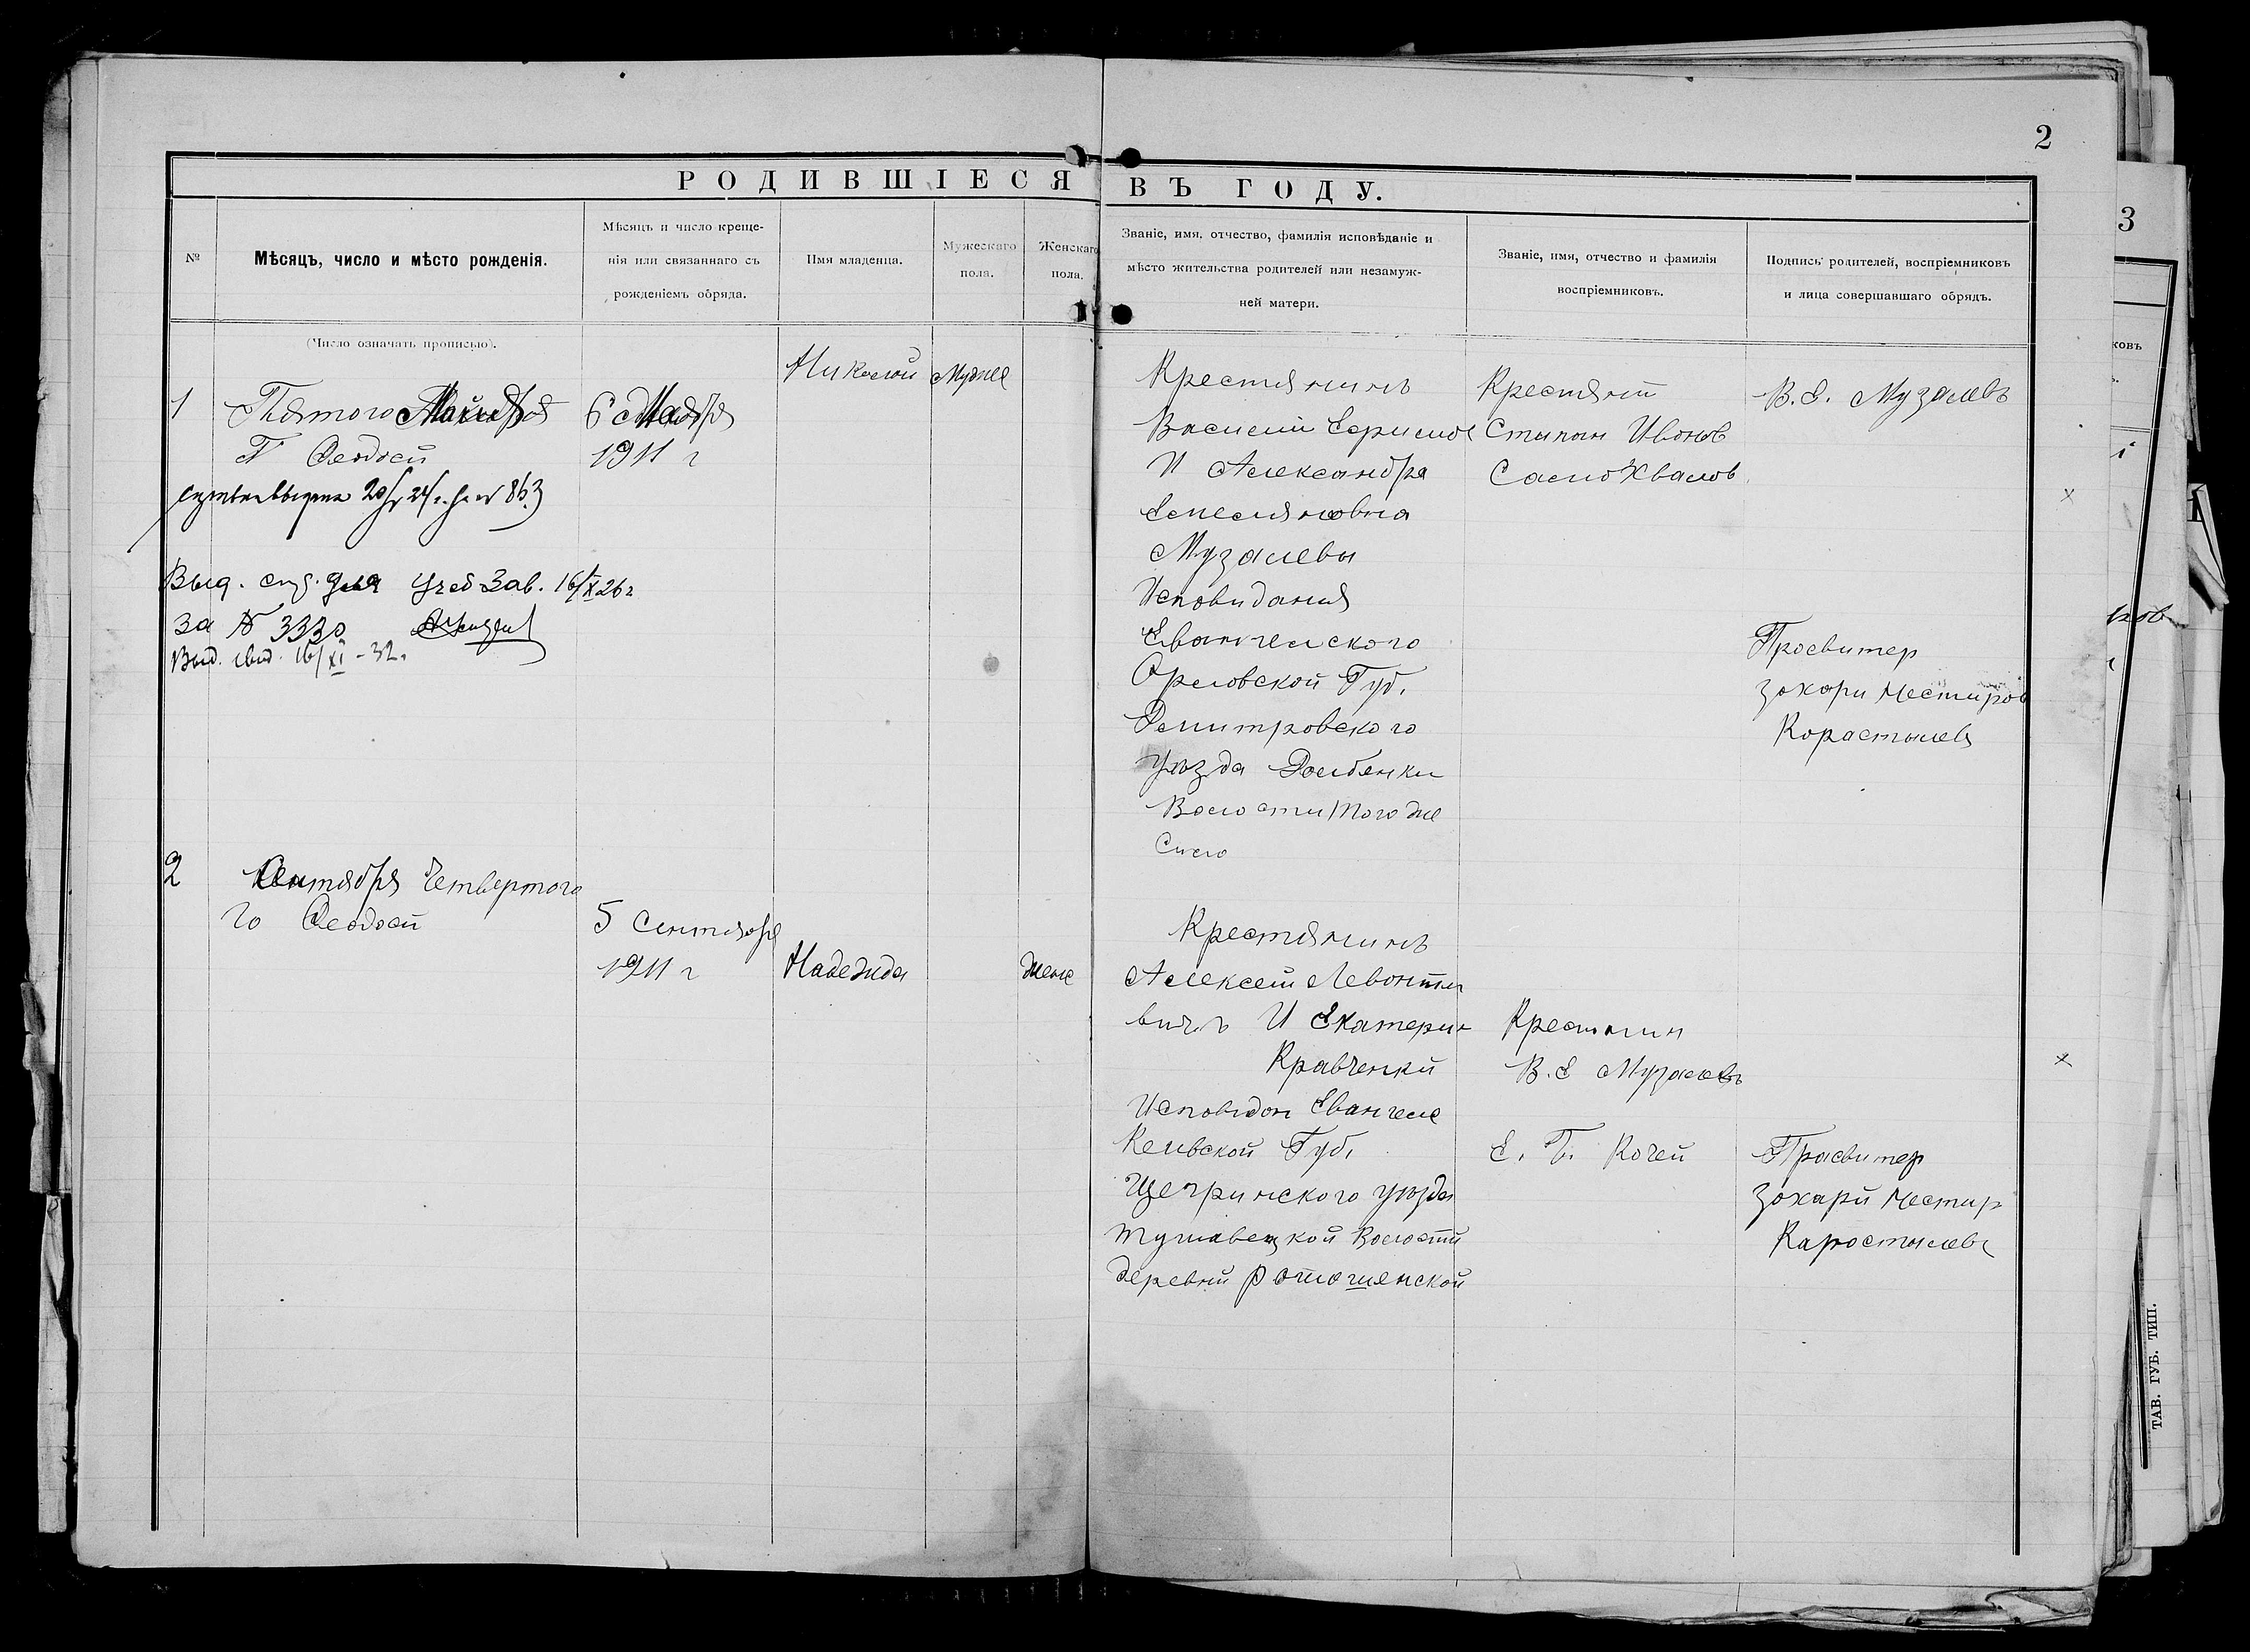 2
РОДИВШІЕСЯ ВЪ ГОДУ.
№
Мѣсяцъ, число и мѣсто рожденія.
Мѣсяцъ и число креще-
нія или связаннаго съ
рожденіемъ обряда.
Имя младенца.
Мужескаго
пола.
Женскаго
пола.
Званіе, имя, отчество, фамилія исповѣданіе и
мѣсто жительства родителей или незамуж-
ней матери.
Званіе, имя, отчество и фамилія
воспріемниковъ.
Подпись родителей, воспріемниковъ
и лица совершавшаго обрядъ.
(Число означать прописью).
1
Пятого
Г Феодоси
Выд. для учеб Зав. 16/X 26 г
за № 3330
Выд. свид. 16/XI - 32.
6
1911 г
Николай
Муже
Крестянинъ
Василий
И Александра
Музалевы
Исповидания
Евангелского
Орловской Губ.
Дмитровского
Уѣзда
Волости того же
Сило
Крестян
Стипан Иванов
Самохвалов
В. Е. Музалевъ
Просвитер
Захари
Корастылев
2
Сентября Четвертого
го Феодоси
5 Сентября
1911 г
Надежда
жене
Крестянинъ
Алексей Левонти
вичъ И Екатерин
Кравченки
Исповидан Евангеле
Кеивской Губ.
уѣзда
Волости
деревни
В. Е Музалевъ
Е. Г. Кочей
Просвитер
Захари
Каростылев
3
ТАВ. ГУБ. ТИП.